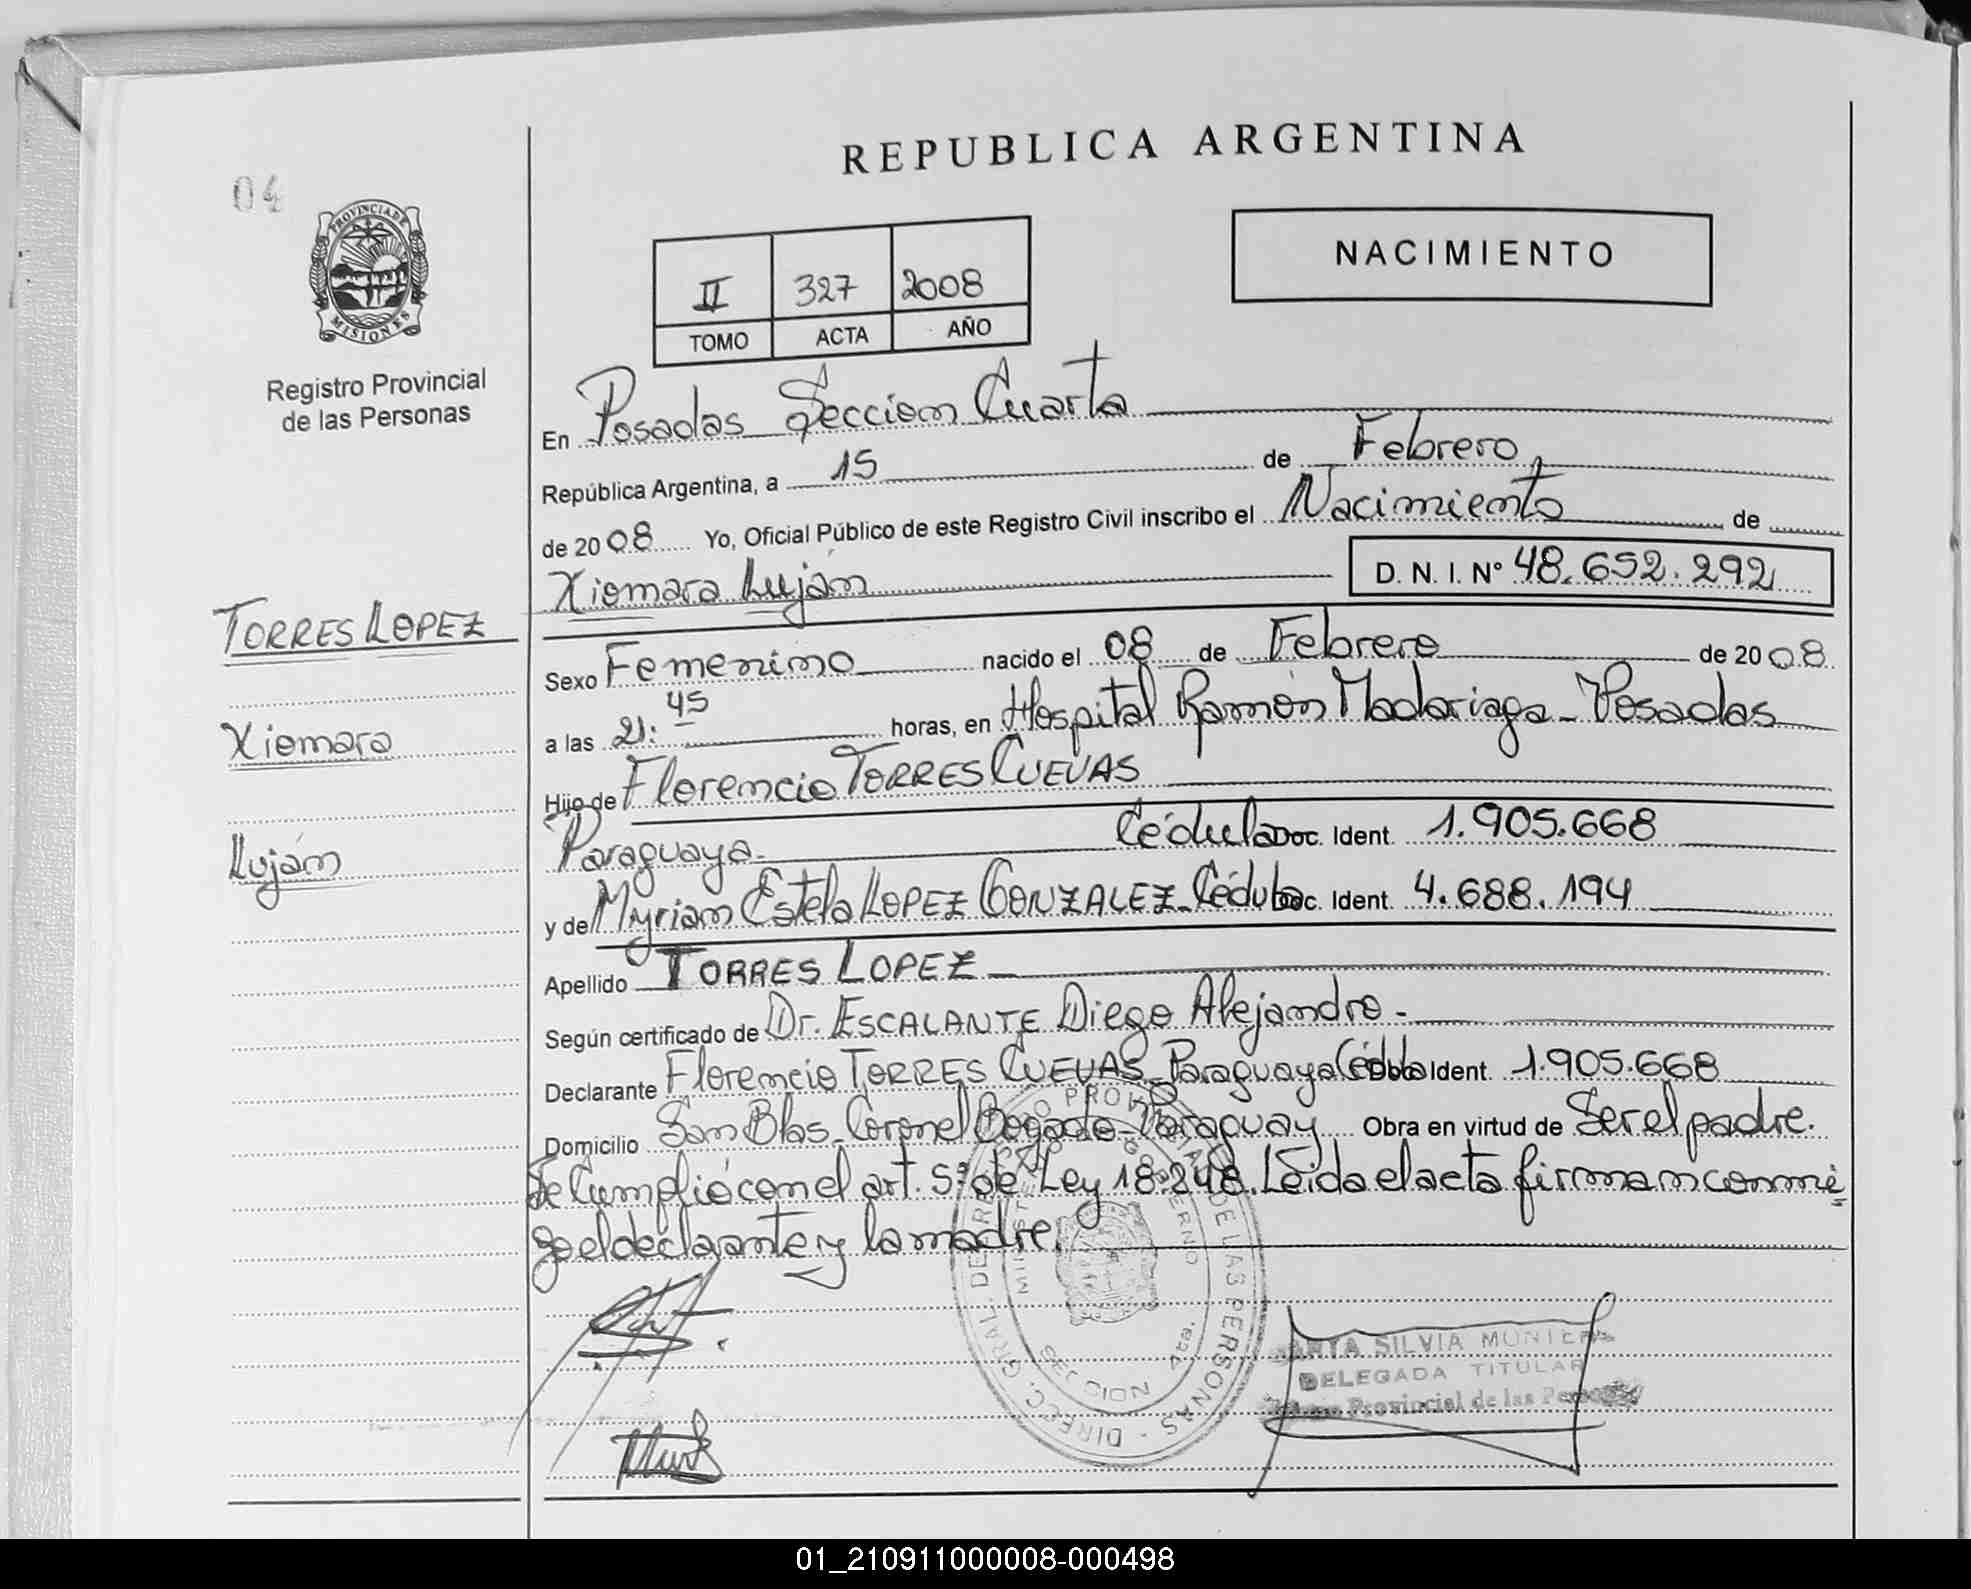 REPUBLICA ARGENTINA
04
PROVINCIA DE
MISIONES
Registro Provincial
de las Personas
NACIMIENTO
II 327 2008
TOMO ACTA AÑO
En Posadas Seccion Cuarta
República Argentina, a 15 de Febrero
de 2008 Yo, Oficial Público de este Registro Civil inscribo el Nacimiento de
Xiomara Luján D. N. I. Nº 48.652.292
TORRES LOPEZ
Xiomara
Luján
Sexo Femenino nacido el 08 de Febrero de 2008
a las 21:45 horas, en Hospital Ramón Madariaga - Posadas
Hijo de Florencio TORRES CUEVAS
Paraguaya- Cédula Doc. Ident. 1.905.668
y de Myrian Estela LOPEZ GONZALEZ - Cédula Doc. Ident. 4.688.194
Apellido TORRES LOPEZ
Según certificado de Dr. ESCALANTE Diego Alejandro-
Declarante Florencio TORRES CUEVAS - Paraguaya Cédula Ident. 1.905.668
Domicilio San Blas - Coronel Bogado - Paraguay Obra en virtud de Ser el padre.
Se Cumplió con el art. 5º de Ley 18.248. Leida el acta firman conmi=
go el declarante y la madre.
DIRECC. GRAL. DE PROVINCIAL DE LAS PERSONAS
MINISTERIO DE GOBIERNO
SECCION 4ta.
SILVIA
DELEGADA TITULAR
Provincial de las Personas
01_210911000008-000498